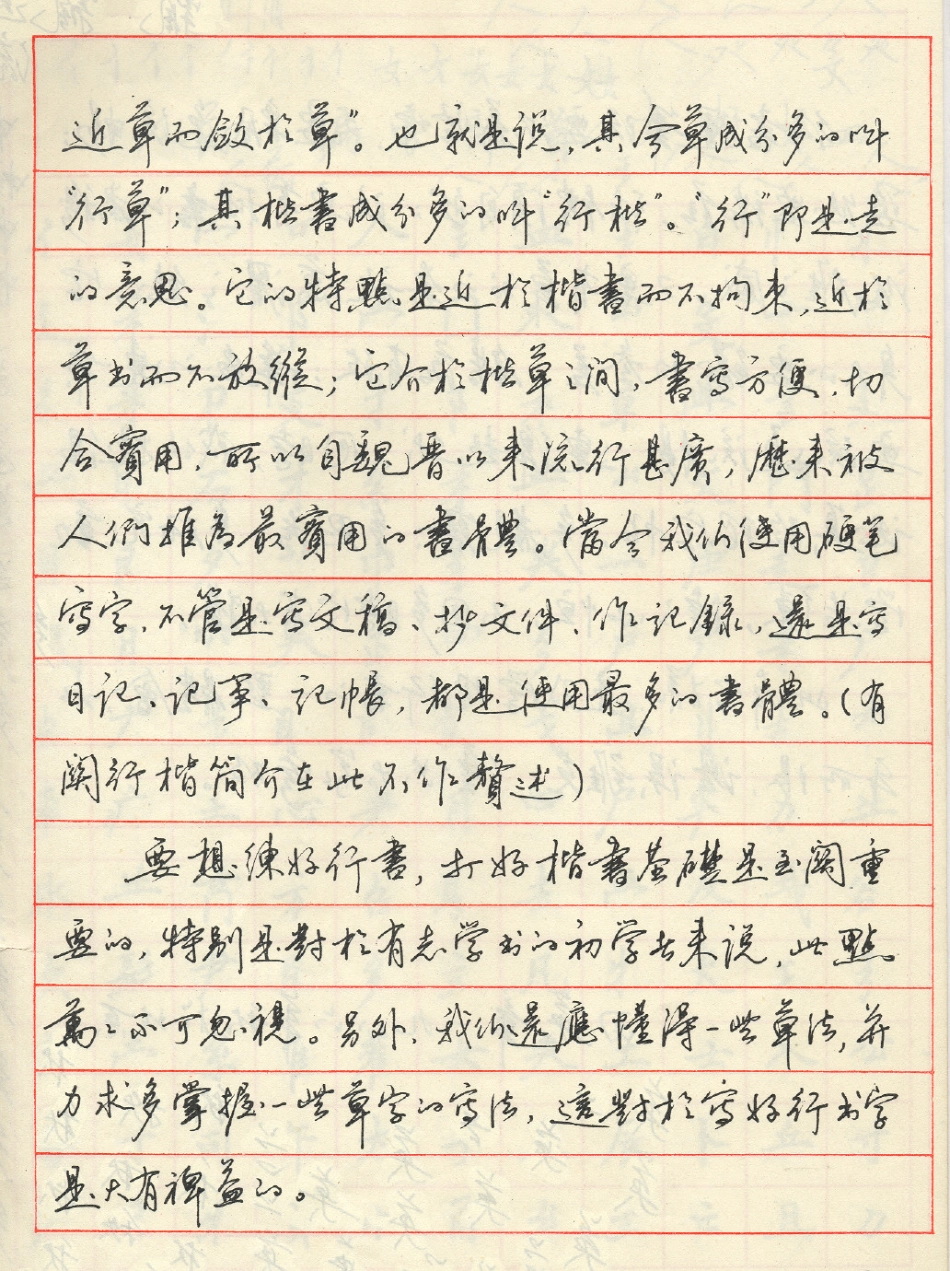 近草而敛於草”。也就是说，其含草成分多的叫
“行草”；其楷書成分多的叫“行楷”。“行”即是走
的意思。它的特點是近於楷書而不拘束，近於
草书而不放縱；它介於楷草之間，書寫方便，切
合實用，所以自魏晋以来流行甚廣，歷来被
人們推為最實用的書體。當今我们使用硬笔
寫字，不管是寫文稿、抄文件、作記錄，還是寫
日記、記事、記帳，都是使用最多的書體。（有
関行楷简介在此不作贅述）
要想練好行書，打好楷書基礎是至関重
要的，特别是對於有志学书的初学者来说，此點
萬萬不可忽視。另外，我们還應懂得一些草法，并
力求多掌握一些草字的寫法，這對於寫好行书字
是大有裨益的。